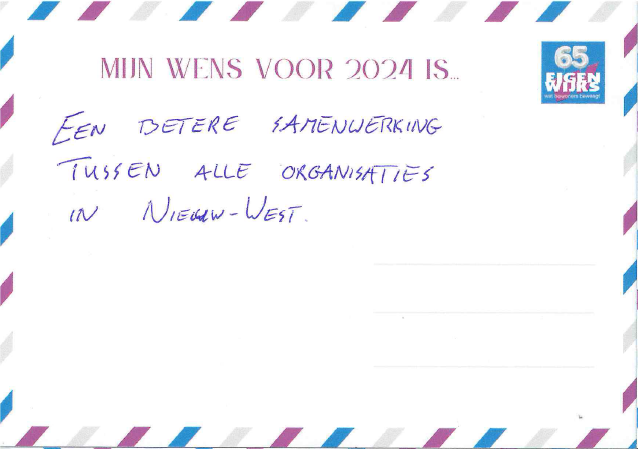 MIJN WENS VOOR 2024 IS...
65
EIGEN
WIJKS
wat bewoners beweegt
EEN BETERE SAMENWERKING
TUSSEN ALLE ORGANISATIES
IN NIEUW-WEST.